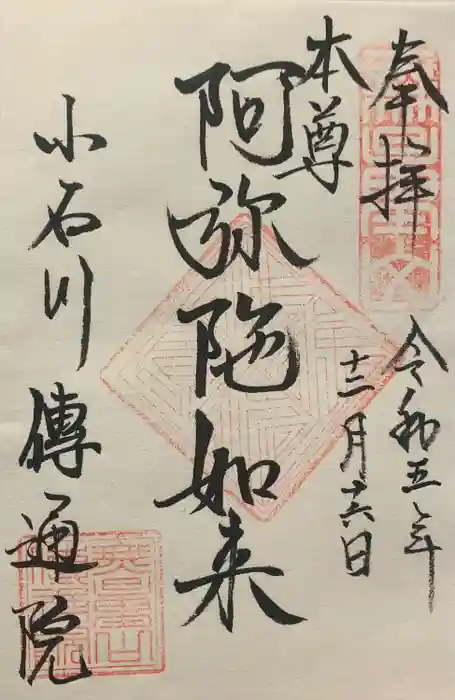 奉拝
令和五年
十二月十六日
本尊
阿弥陀如来
小石川
傳通院